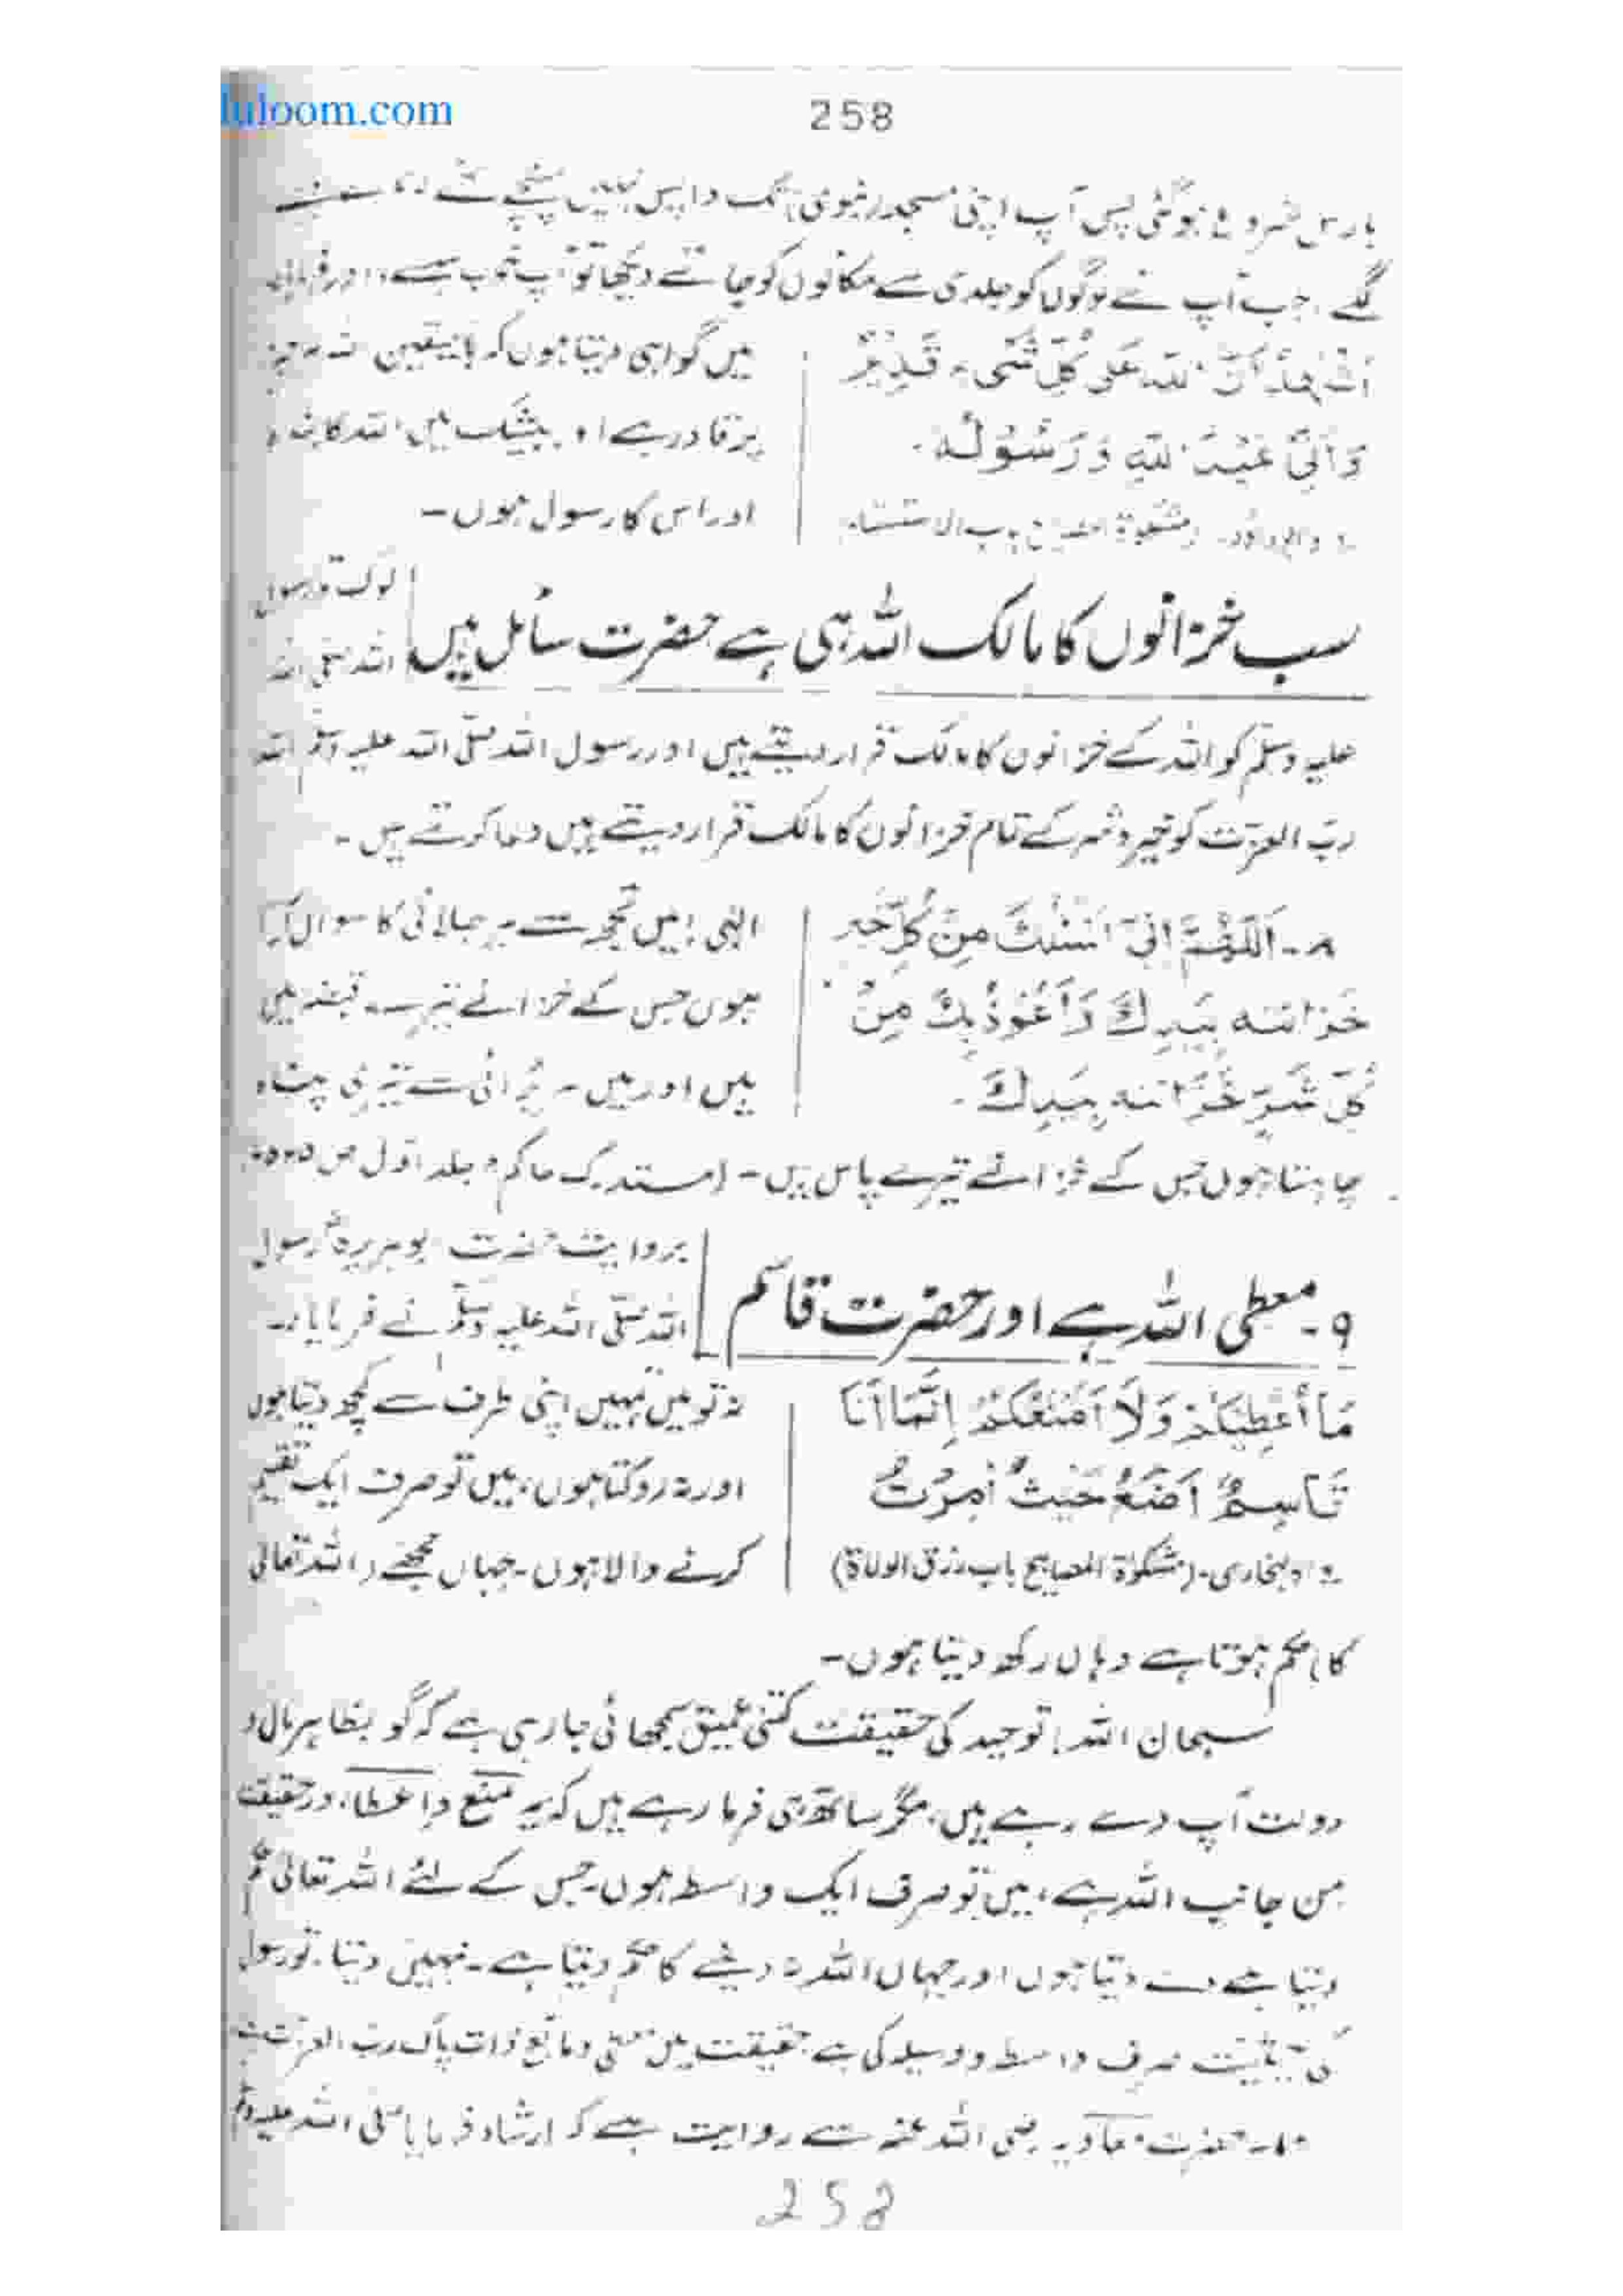 luloom.com
258
بارش شروع ہوگئی پس آپ اپنی مسجد نبوی تک واپس نہیں پہنچے تھے
گئے۔ جب آپ نے لوگوں کو جلدی سے مکانوں کو جاتے دیکھا تو آپ اور فرمایا
اَشْهَدُ اَنَّ اللّٰہَ عَلٰی کُلِّ شَیْءٍ قَدِیْرٌ
وَ اَنِّیْ عَبْدُ اللّٰہِ وَ رَسُوْلُہٗ۔
میں گواہی دیتا ہوں کہ بالیقین اللہ
پر قادر ہے اور بیشک میں اللہ کا بندہ
اور اس کا رسول ہوں۔
سب خزانوں کا مالک اللہ ہی ہے حضرت سائل ہیں
لوگ تو رسول
اللہ صلی اللہ
علیہ وسلّم کو اللہ کے خزانوں کا مالک قرار دیتے ہیں اور رسول اللہ صلّی اللہ علیہ وسلّم اللہ
ربّ العزّت کو خیر و شر کے تمام خزانوں کا مالک قرار دیتے ہیں دعا کرتے ہیں۔
۸۔ اَللّٰھُمَّ اِنِّیْ اَسْئَلُکَ مِنْ کُلِّ خَیْرٍ
خَزَائِنُہ بِیَدِکَ وَ اَعُوْذُبِکَ مِنْ
کُلِّ شَرٍّ خَزَائِنُہ بِیَدِکَ۔
الٰہی! میں تجھ سے ہر بھلائی کا سوال کرتا
ہوں جس کے خزانے تیرے قبضہ میں
ہیں اور میں ہر بُرائی سے تیری پناہ
چاہتا ہوں جس کے خزانے تیرے پاس ہیں۔ (مستدرک حاکم جلد اوّل ص
۹۔ معطی اللہ ہے اور حضرت قاسم
بروایت حضرت ابوہریرہؓ رسول
اللہ صلّی اللہ علیہ وسلّم نے فرمایا:۔
مَا اُعْطِیْکُمْ وَلَا اَمْنَعُکُمْ اِنَّمَا اَنَا
قَاسِمٌ اَضَعُ حَیْثُ اُمِرْتُ
رواہ البخاری۔ (مشکوٰۃ المصابیح باب رزق الولاۃ)
نہ تو میں تمہیں اپنی طرف سے کچھ دیتا ہوں
اور نہ روکتا ہوں، میں تو صرف ایک تقسیم
کرنے والا ہوں۔ جہاں مجھے (اللہ تعالیٰ
کا) حکم ہوتا ہے وہاں رکھ دیتا ہوں۔
سبحان اللہ! توحید کی حقیقت کتنی عمیق سمجھائی جا رہی ہے کہ گو بظاہر مال و
دولت آپ دے رہے ہیں، مگر ساتھ ہی فرما رہے ہیں کہ یہ منع و اعطا، درحقیقت
من جانب اللہ ہے، میں تو صرف ایک واسطہ ہوں۔ جس کے لئے اللہ تعالیٰ حکم
دیتا ہے دے دیتا ہوں اور جہاں اللہ نہ دینے کا حکم دیتا ہے۔ نہیں دیتا۔ تو رسول
کی حیثیت صرف واسطہ و وسیلہ کی ہے حقیقت میں معطی و مانع ذات پاک رب العزت
۱۰۔ حضرت معاویہ رضی اللہ عنہ سے روایت ہے کہ ارشاد فرمایا صلّی اللہ علیہ وسلّم
258